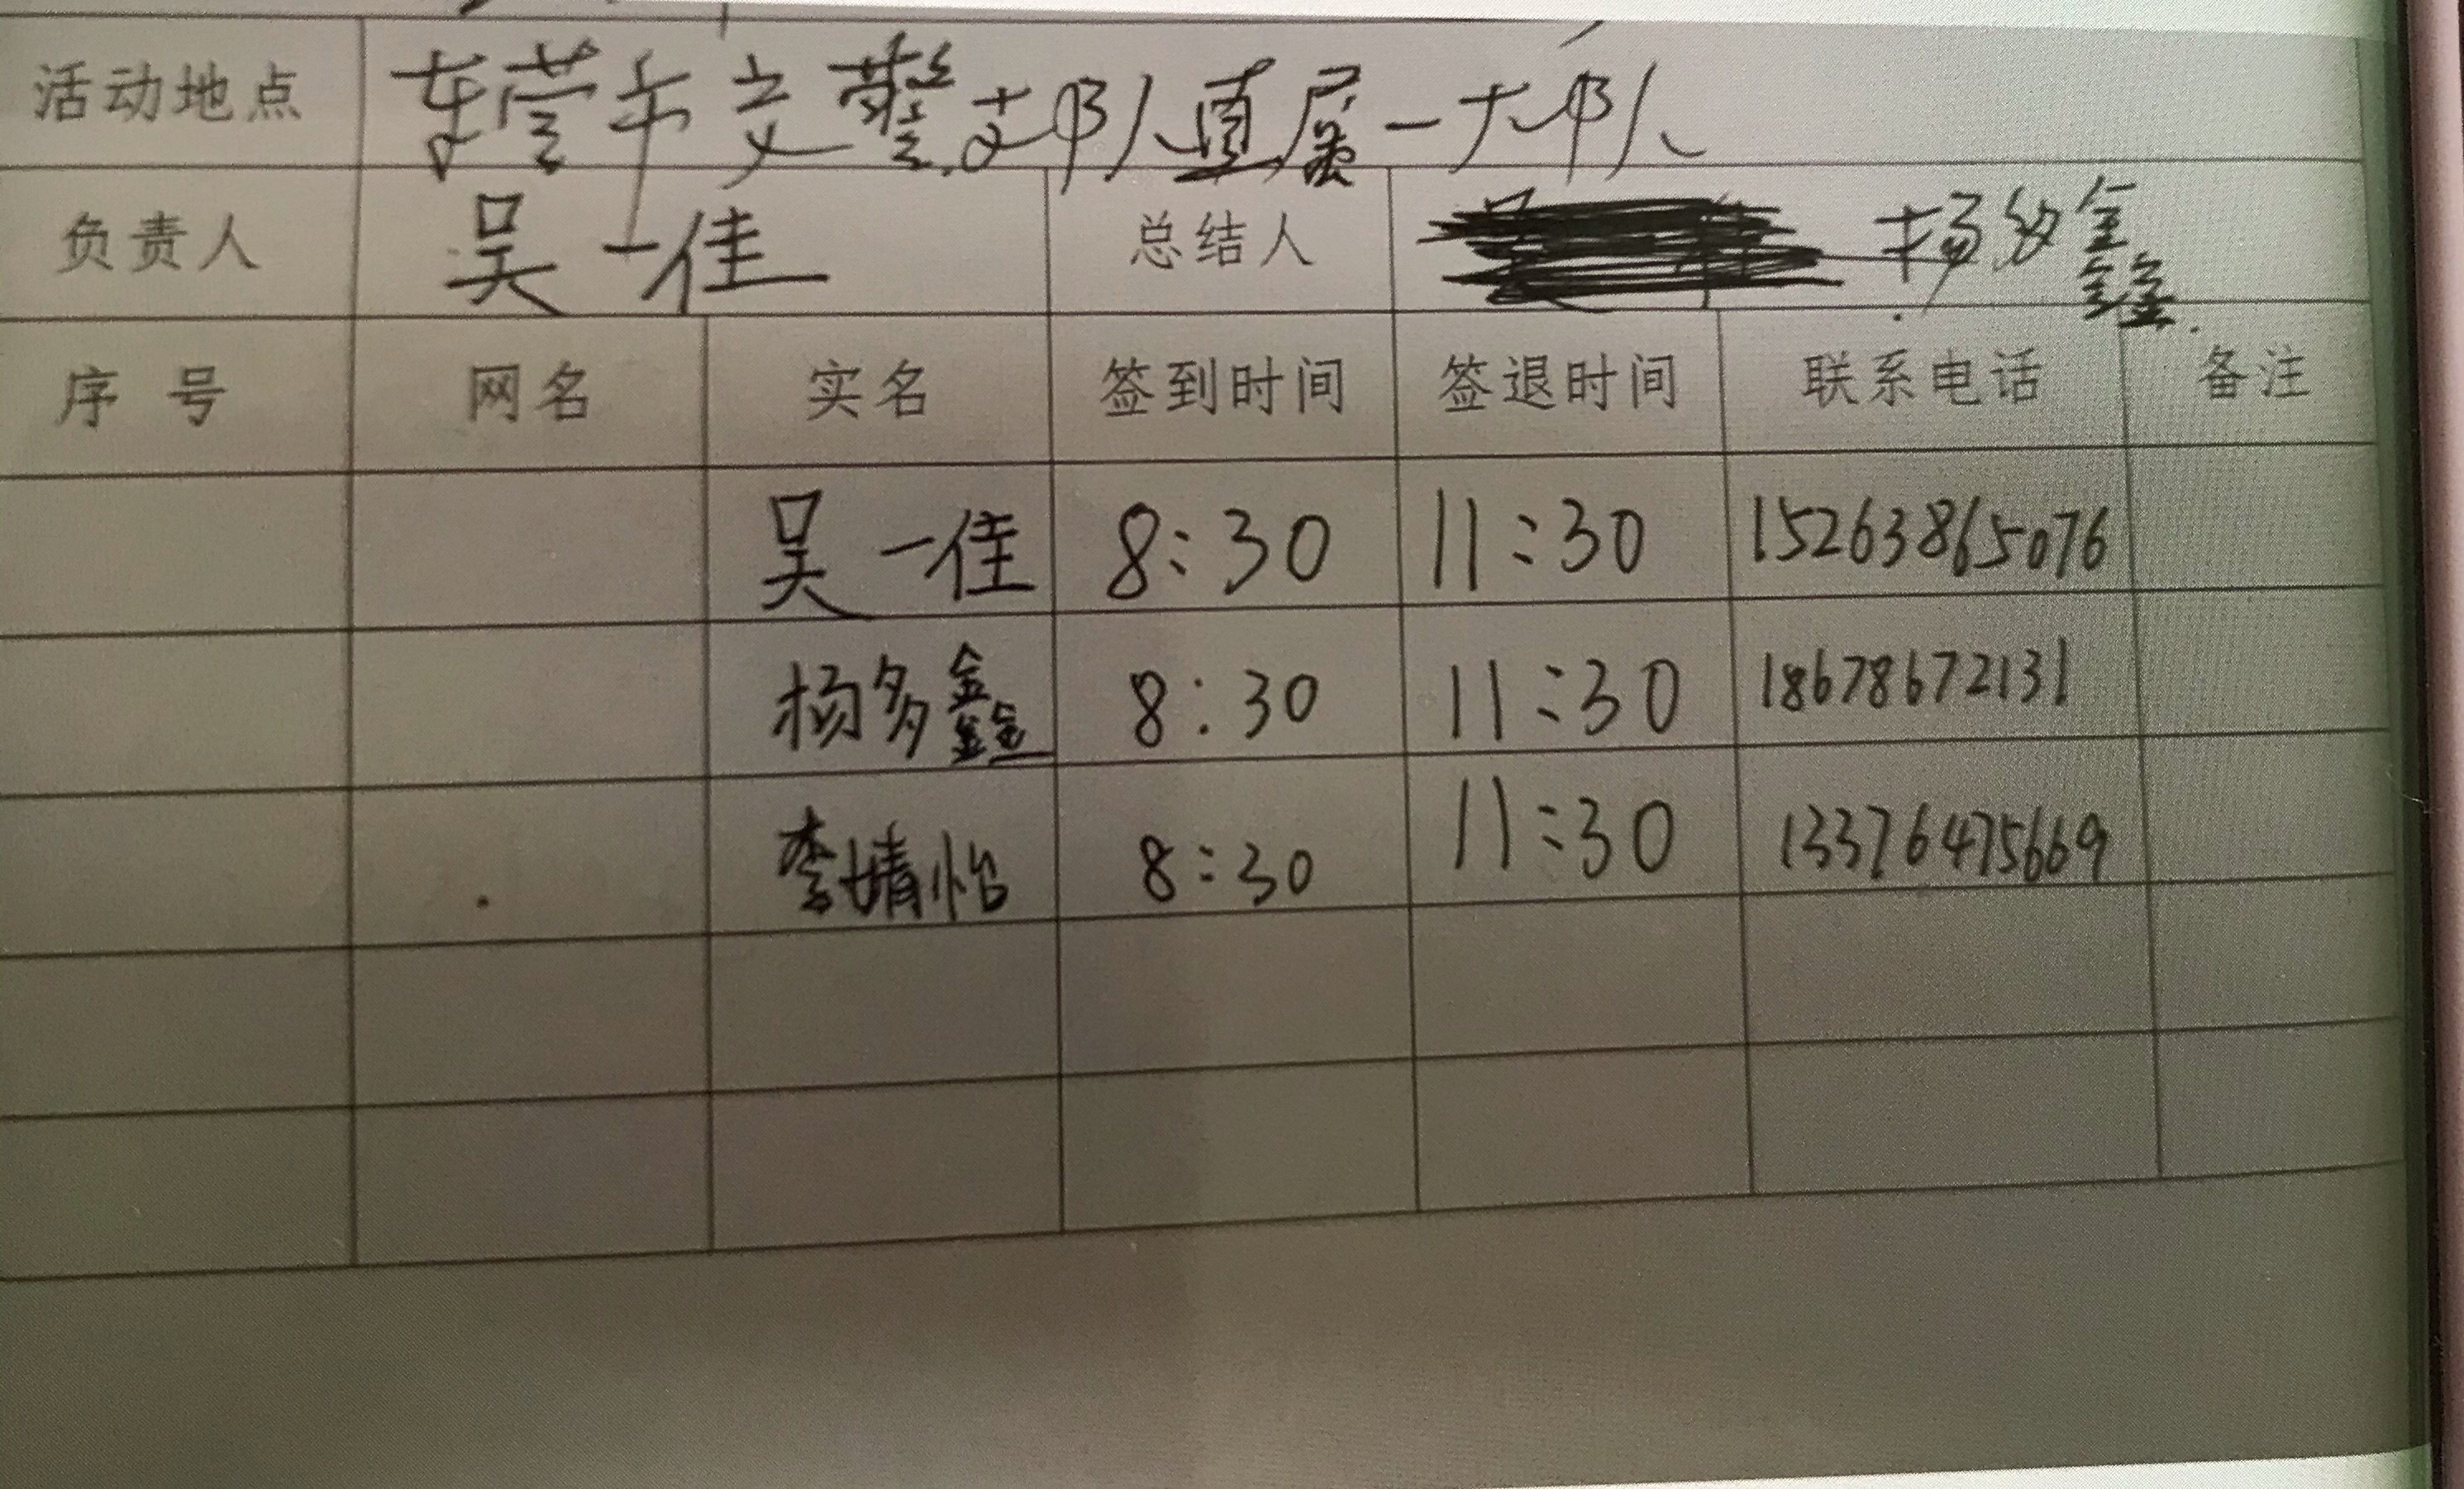 活动地点 东营市交警支队直属一大队
负责人 吴一佳 总结人 杨多鑫
序号 网名 实名 签到时间 签退时间 联系电话 备注
吴一佳 8:30 11:30 15263865076
杨多鑫 8:30 11:30 18678672131
李婧怡 8:30 11:30 13376475669